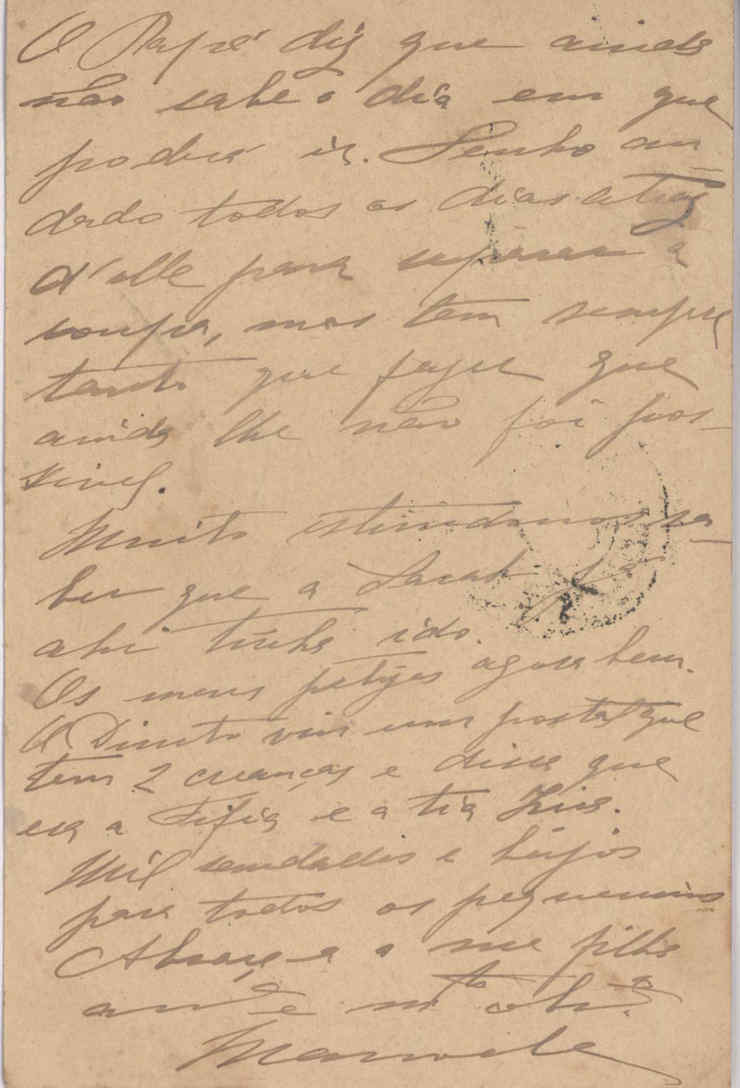 O Papá diz que ainda
não sabe o dia em que
poderá ir. Tenho an
dado todos os dias atraz
d'elle para separar a
roupa, mas tem sempre
tanto que fazer que
ainda lhe não foi pos-
sivel.
Muito estimámos sa-
ber que a Sarah já
ahi tinha ido.
Os meus petizes agora bem.
O viu um postal que
tem 2 crianças e disse que
era a Fifia e a tia
Mil saudades e beijos
para todos os pequeninos
Abraça-a a sua filha
am.ª e m.to obr.ª
Manuela